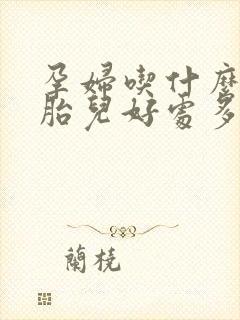 孕婦喫什麼
胎兒好處多
蘭橈